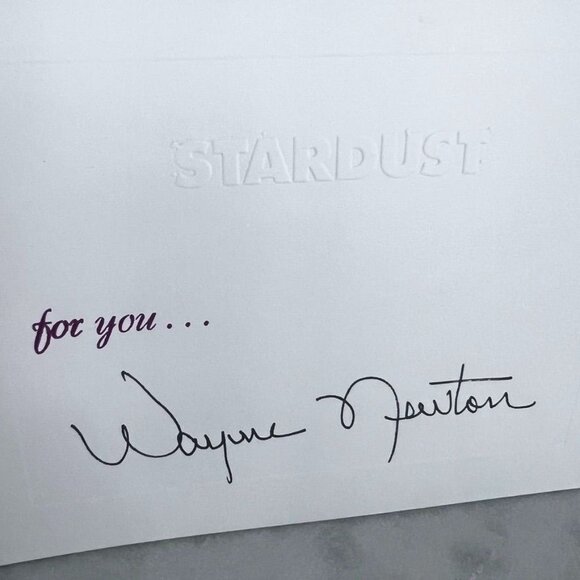 STARDUST
for you...
Wayne Newton